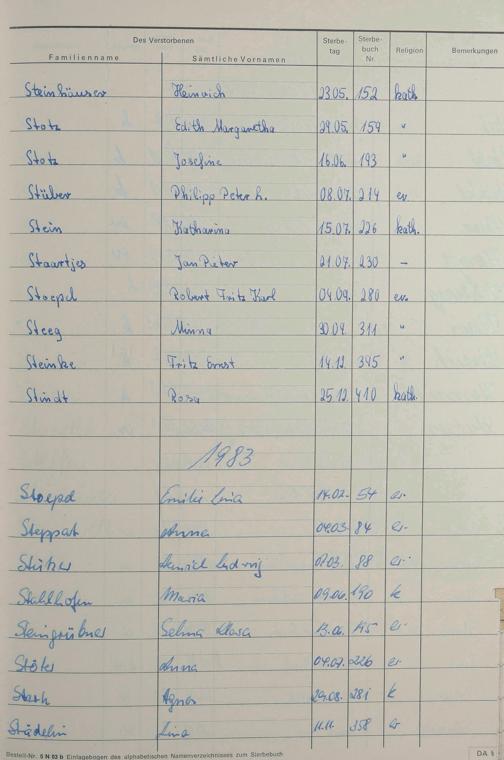 Des Verstorbenen
Familienname Sämtliche Vornamen Sterbe-tag Sterbe-buch Nr. Religion Bemerkungen
Steinhäuser Heinrich 23.05. 152 kath.
Stotz Edith Margaretha 29.05. 159 "
Stotz Josefine 16.06. 193 "
Stüber Philipp Peter H. 08.07. 214 ev.
Stein Katharina 15.07. 226 kath.
Staartjes Jan Pieter 21.07. 230 -
Stoepel Robert Fritz Karl 04.09. 280 ev.
Steeg Minna 311 "
Steinke Fritz Ernst 14.12. 395 "
Stindt Rosa 25.12. 410 kath.
1983
Stoepel Emilie Lina 14.02. 54 ev.
Steppat Anna 04.03. 84 ev.
Heinrich Ludwig 07.03. 88 ev.
Stahlhofen Maria 09.06. 190 k
Steingrübner Selma Klara 13.06. 195 ev
Anna 04.07. 226 ev.
Stark Agnes 29.08. 281 k
Städelin Lina 11.11. 358 ev
Bestell-Nr. 5 N 03 b Einlagebogen des alphabetischen Namenverzeichnisses zum Sterbebuch DA 5